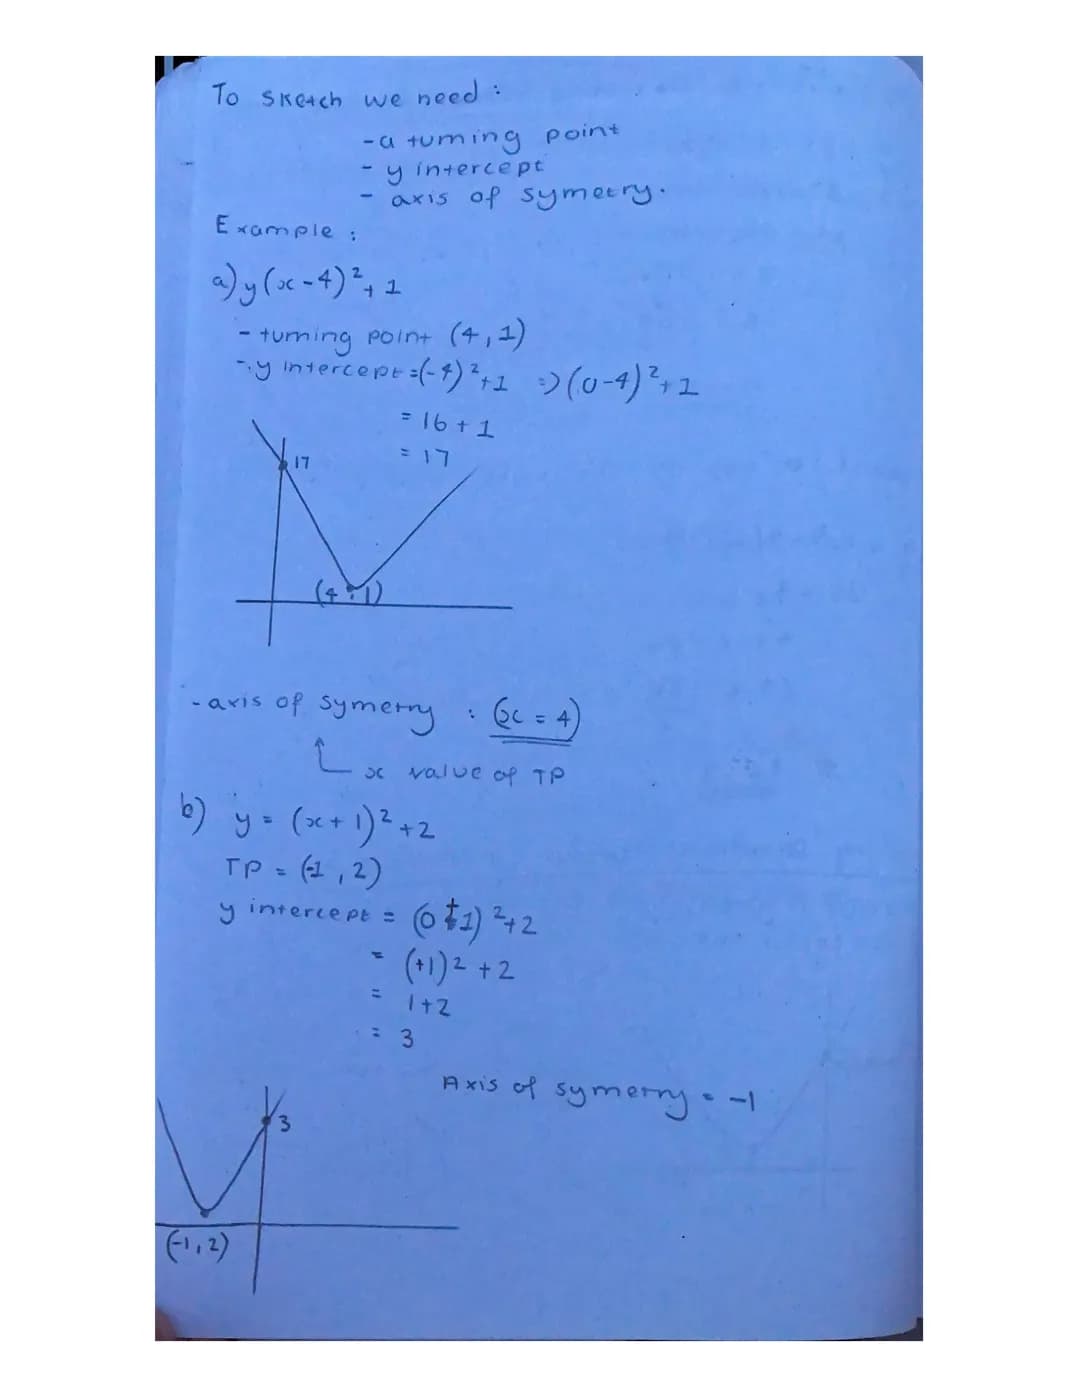 To sketch we need :
- a turning point
- y intercept
- axis of symetry.
Example :
a) y(x-4)²+1
- turning point (4,1)
- y intercept =(-4)²+1 => (0-4)²+1
= 16+1
= 17
17
(4,1)
- axis of symetry : (x = 4)
x value of TP
b) y = (x+1)²+2
TP = (-1,2)
y intercept = (0+1)²+2
= (+1)2 +2
= 1+2
= 3
Axis of symetry = -1
3
(-1,2)